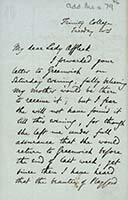 Add. Ms. a 79
Trinity College
Tuesday
My dear Lady Affleck
I forwarded your
letter to Greenwich on
Saturday evening, fully hoping
my mother would be there
to receive it; but I fear
she will not have found it
till this evening, for though
she left me under full
assurance that she would
return to Greenwich before
the end of last week, yet
since then I have heard
that the